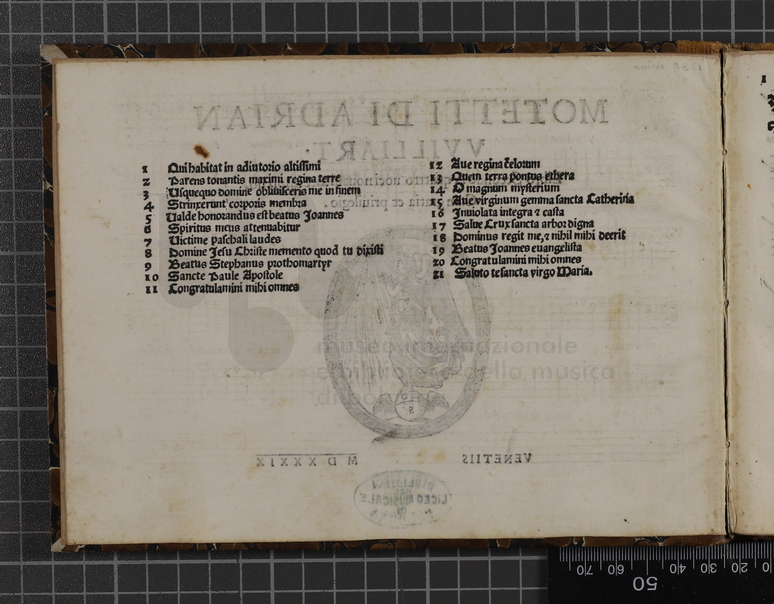 1 Qui habitat in adiutorio altissimi
2 Parens tonantis maximi regina terre
3 Usquequo domine oblivisceris me in finem
4 Strinxerunt corporis membra
5 Valde honorandus est beatus Joannes
6 Spiritus meus attenuabitur
7 Victime paschali laudes
8 Domine Jesu Christe memento quod tu dixisti
9 Beatus Stephanus prothomartyr
10 Sancte Paule Apostole
11 Congratulamini mihi omnes
12 Ave regina celorum
13 Quem terra pontus ethera
14 O magnum mysterium
15 Ave virginum gemma sancta Catherina
16 Inviolata integra et casta
17 Salve Crux sancta arbor digna
18 Dominus regit me, et nihil mihi deerit
19 Beatus Joannes evangelista
20 Congratulamini mihi omnes
21 Saluto te sancta virgo Maria.
MOTETTI DI ADRIAN
VVILLIART
museo internazionale
e biblioteca della musica
di bologna
VENETIIS
M D XXXIX
BIBLIOTECA
LICEO MUSICALE
1
70 60 50 40 30 20 10
50